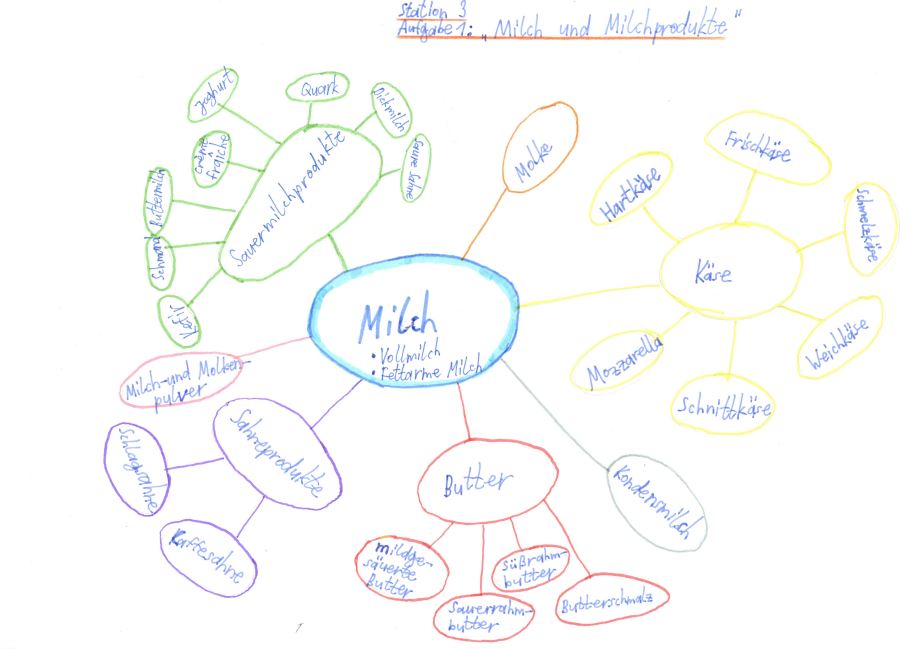 Station 3
Aufgabe 1: „Milch und Milchprodukte"
Joghurt
Quark
Dickmilch
Saure Sahne
Crème
fraîche
Buttermilch
Schmand
Kefir
Sauermilchprodukte
Molke
Frischkäse
Hartkäse
Schmelzkäse
Käse
Weichkäse
Mozzarella
Schnittkäse
Milch
• Vollmilch
• Fettarme Milch
Milch-und Molken-
pulver
Sahneprodukte
Schlagsahne
Kaffesahne
Butter
mildge-
säuerte
Butter
Sauerrahm-
butter
Süßrahm-
butter
Butterschmalz
Kondensmilch